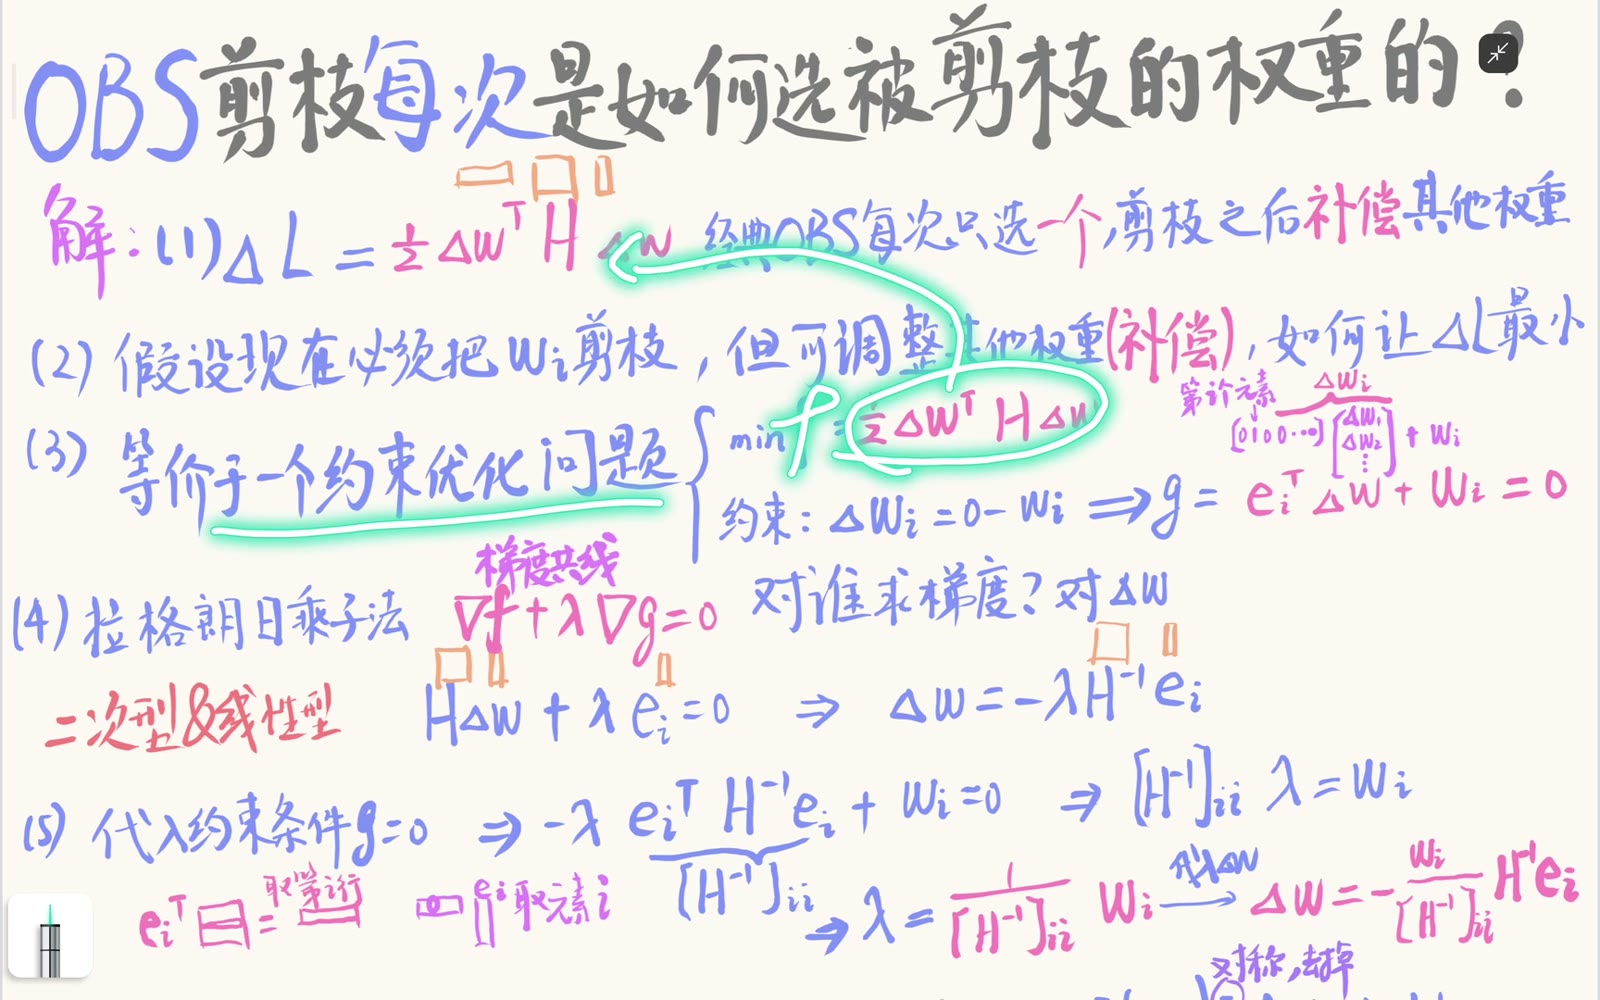 OBS剪枝每次是如何选被剪枝的权重的?
解:(1) ΔL = ½ Δwᵀ H Δw 经典OBS每次只选一个,剪枝之后补偿其他权重
(2) 假设现在必须把 wᵢ 剪枝,但可调整其他权重(补偿),如何让ΔL最小
(3) 等价于一个约束优化问题 { min f = ½ Δwᵀ H Δw
第i个元素 Δwᵢ
[0100…0] [Δw₁ Δw₂ ⋮] + wᵢ
约束: Δwᵢ = 0 - wᵢ ⇒ g = eᵢᵀ Δw + wᵢ = 0
梯度共线
(4) 拉格朗日乘子法 ∇f + λ∇g = 0 对谁求梯度? 对Δw
二次型&线性型 HΔw + λeᵢ = 0 ⇒ Δw = -λH⁻¹eᵢ
(5) 代入约束条件g=0 ⇒ -λ eᵢᵀ H⁻¹eᵢ + wᵢ = 0 ⇒ [H⁻¹]ᵢᵢ λ = wᵢ
eᵢᵀ = 取第i行 eᵢ 取元素i [H⁻¹]ᵢᵢ
⇒ λ = 1/[H⁻¹]ᵢᵢ wᵢ 代入Δw → Δw = - wᵢ/[H⁻¹]ᵢᵢ H⁻¹eᵢ
对称,去掉